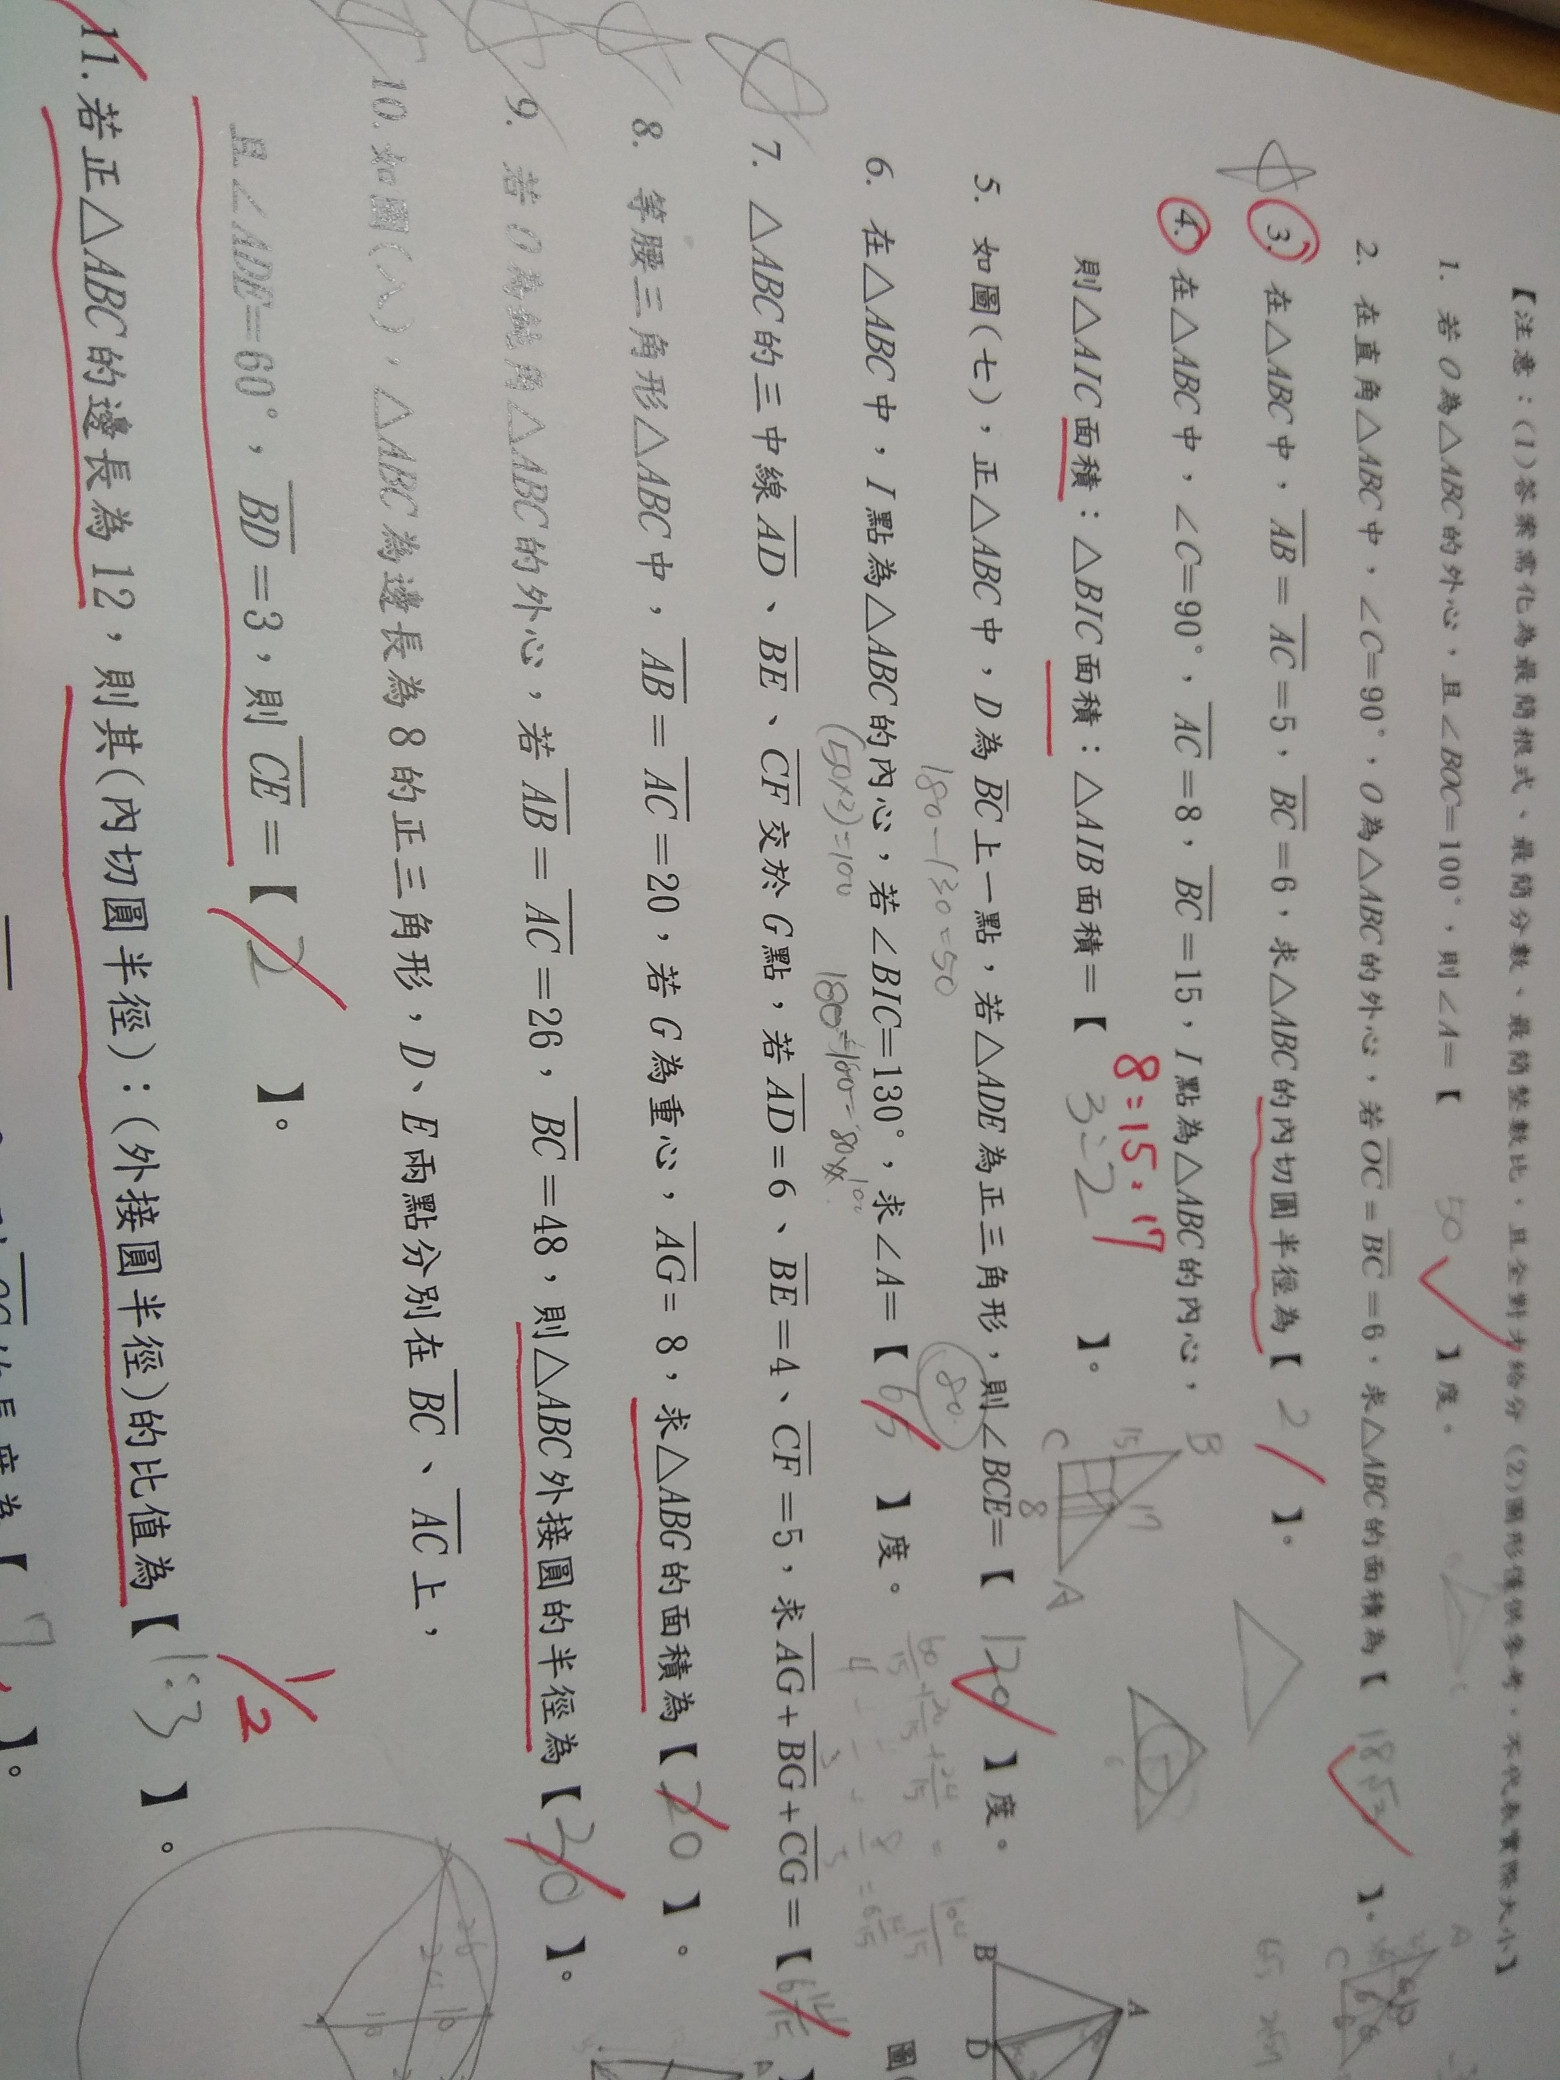 【注意:(1)答案需化為最簡根式、最簡分數、最簡整數比,且全對才給分 (2)圖形僅供參考,不代表實際大小】
1. 若O為△ABC的外心,且∠BOC=100°,則∠A=【 50 】度。
2. 在直角△ABC中,∠C=90°,O為△ABC的外心,若OC=BC=6,求△ABC的面積為【 18√3 】。
3. 在△ABC中,AB=AC=5,BC=6,求△ABC的內切圓半徑為【 2 】。
4. 在△ABC中,∠C=90°,AC=8,BC=15,I點為△ABC的內心,
則△AIC面積:△BIC面積:△AIB面積=【 3:2 】。
8:15:17
B
15
17
C
8
A
5. 如圖(七),正△ABC中,D為BC上一點,若△ADE為正三角形,則∠BCE=【 120 】度。
180-130=50
6. 在△ABC中,I點為△ABC的內心,若∠BIC=130°,求∠A=【 65 】度。
80
(50×2)=100
180-100=80
7. △ABC的三中線AD、BE、CF交於G點,若AD=6、BE=4、CF=5,求AG+BG+CG=【 6 14/15 】
8. 等腰三角形△ABC中,AB=AC=20,若G為重心,AG=8,求△ABG的面積為【 20 】。
9. 若O為鈍角△ABC的外心,若AB=AC=26,BC=48,則△ABC外接圓的半徑為【 30 】。
10. 如圖(八),△ABC為邊長為8的正三角形,D、E兩點分別在BC、AC上,
且∠ADE=60°,BD=3,則CE=【 2 】。
11. 若正△ABC的邊長為12,則其(內切圓半徑):(外接圓半徑)的比值為【 1:3 】。
1/2
A
B
D
圖
26
24
10